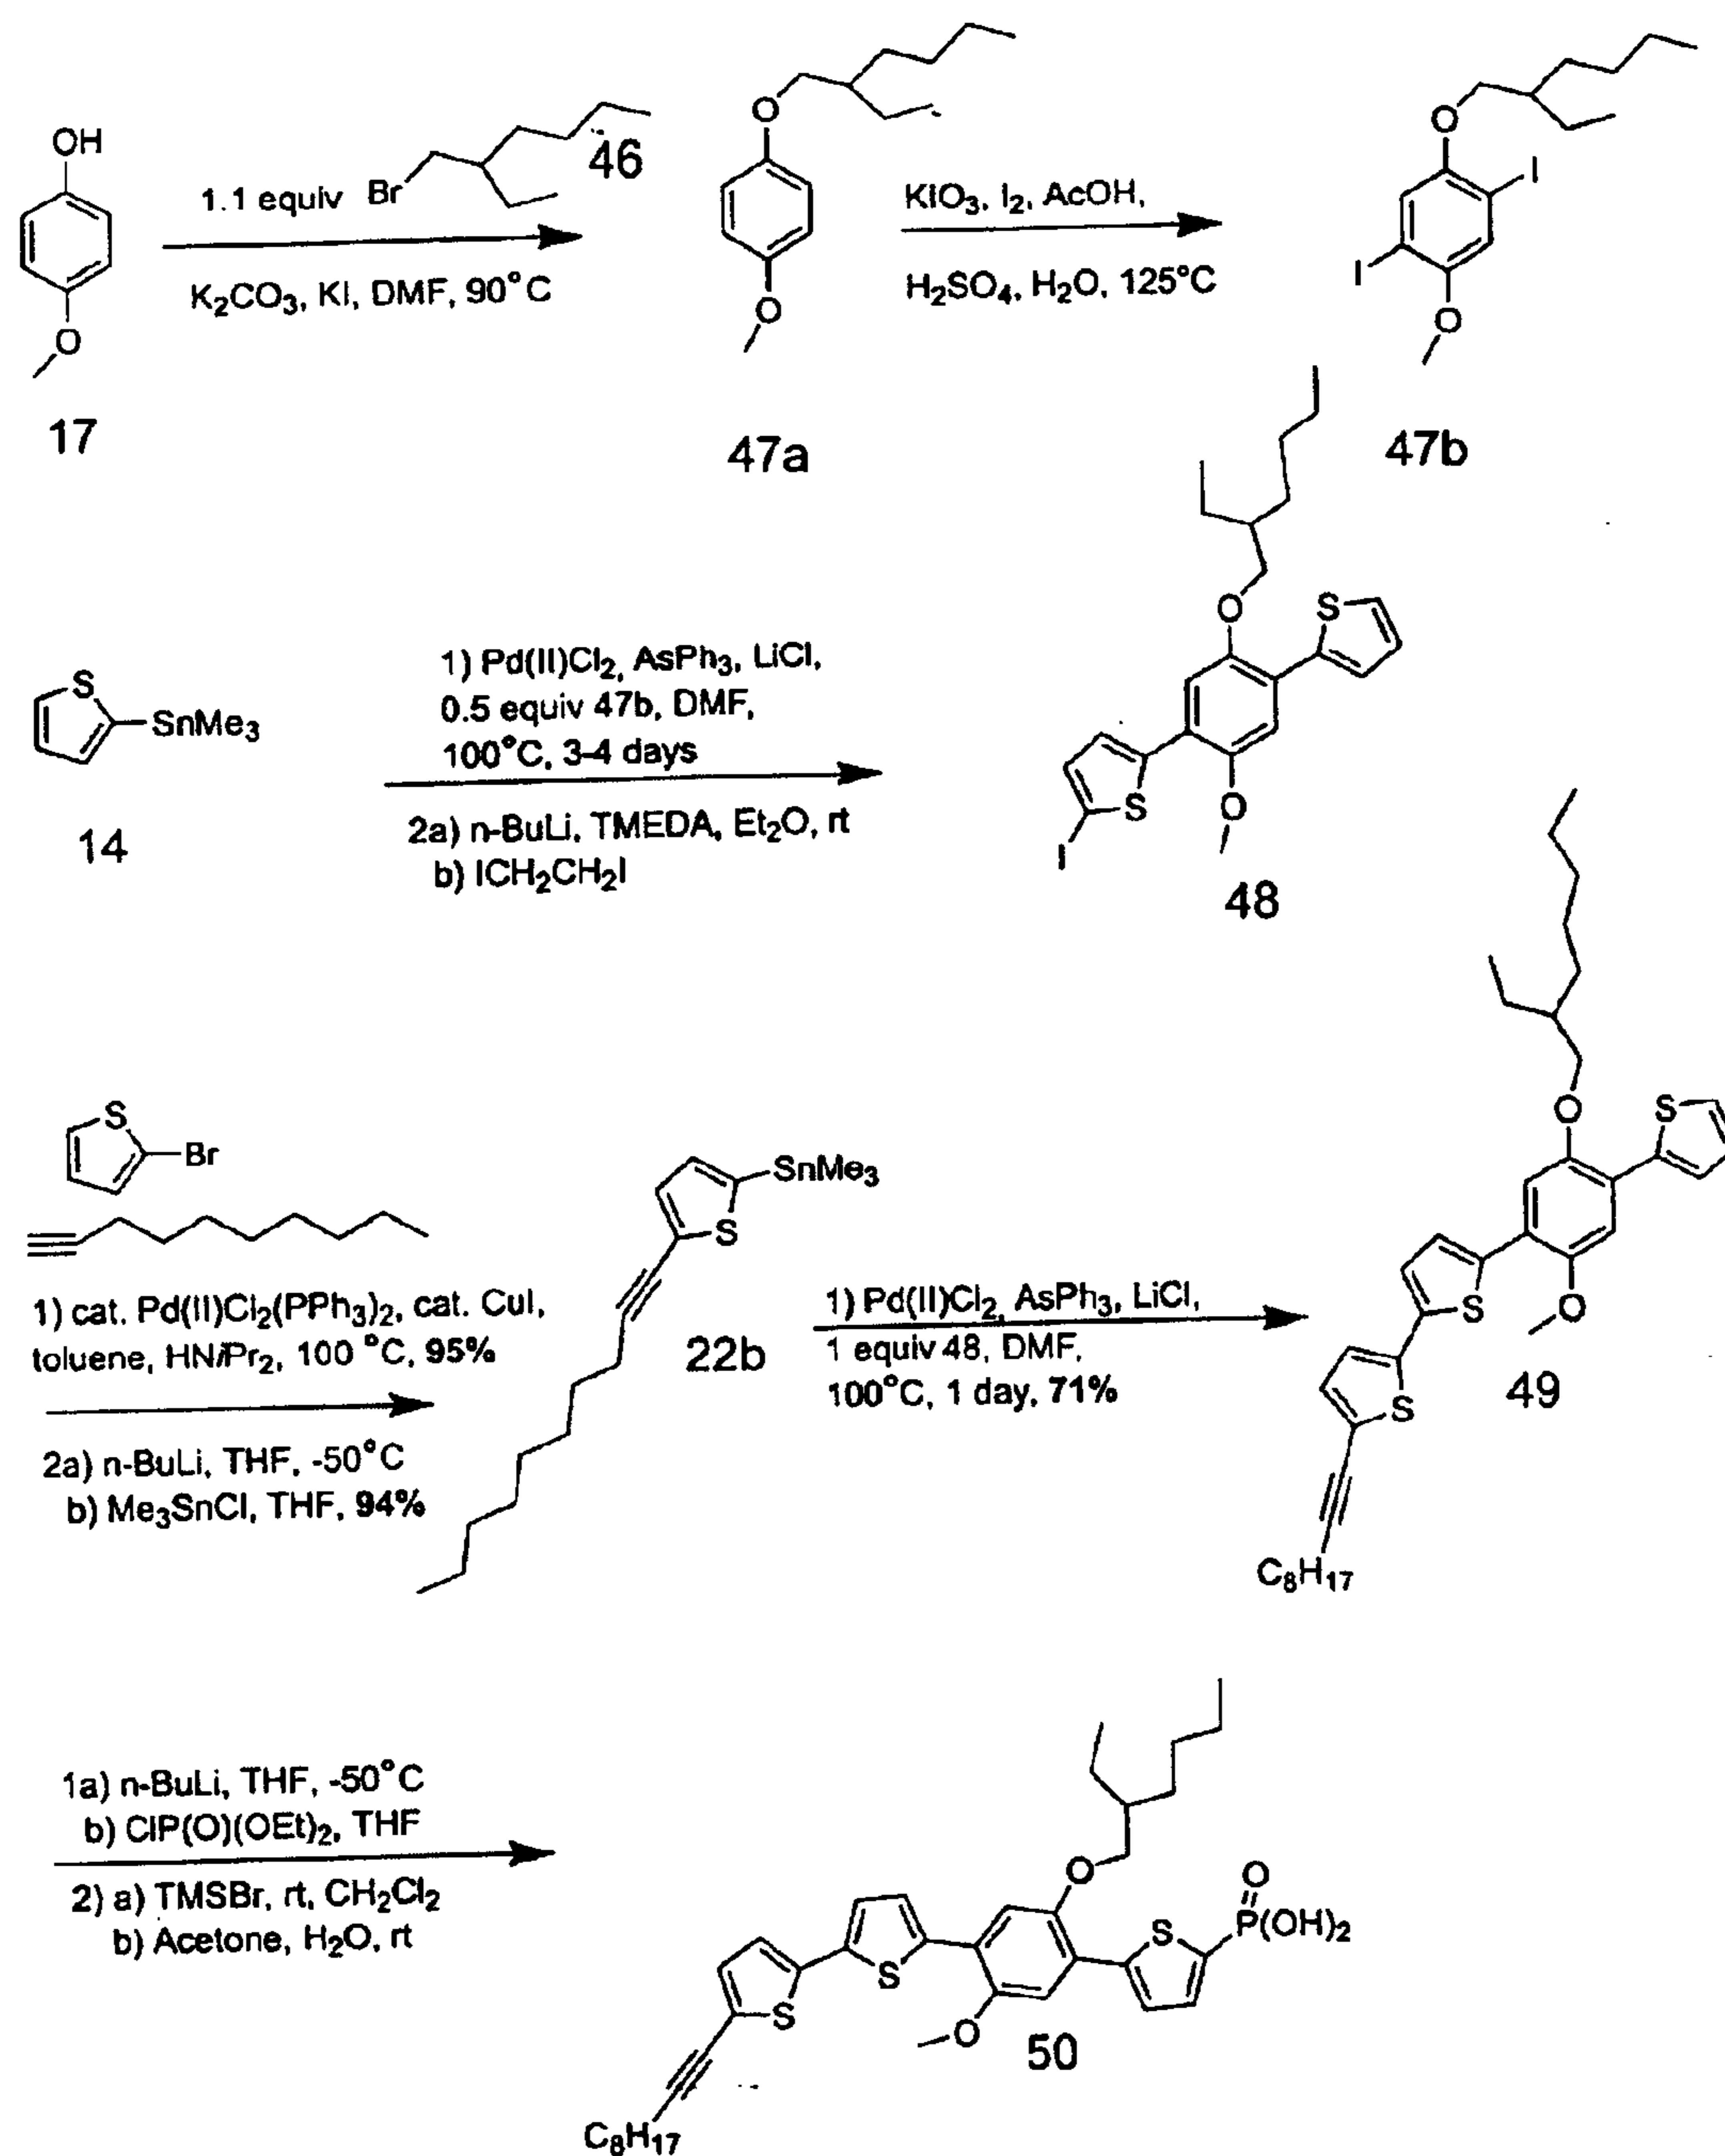 OH
O
17
1.1 equiv
Br
46
K2CO3, KI, DMF, 90°C
O
O
47a
KIO3, I2, AcOH,
H2SO4, H2O, 125°C
O
I
I
O
47b
S
SnMe3
14
1) Pd(II)Cl2, AsPh3, LiCl,
0.5 equiv 47b, DMF,
100°C, 3-4 days
2a) n-BuLi, TMEDA, Et2O, rt
b) ICH2CH2I
O
S
S
O
I
48
S
Br
1) cat. Pd(II)Cl2(PPh3)2, cat. CuI,
toluene, HNiPr2, 100 °C, 95%
2a) n-BuLi, THF, -50°C
b) Me3SnCl, THF, 94%
SnMe3
S
22b
1) Pd(II)Cl2, AsPh3, LiCl,
1 equiv 48, DMF,
100°C, 1 day, 71%
O
S
S
O
S
C8H17
49
1a) n-BuLi, THF, -50°C
b) ClP(O)(OEt)2, THF
2) a) TMSBr, rt, CH2Cl2
b) Acetone, H2O, rt
O
O
S
P(OH)2
S
S
O
50
C8H17